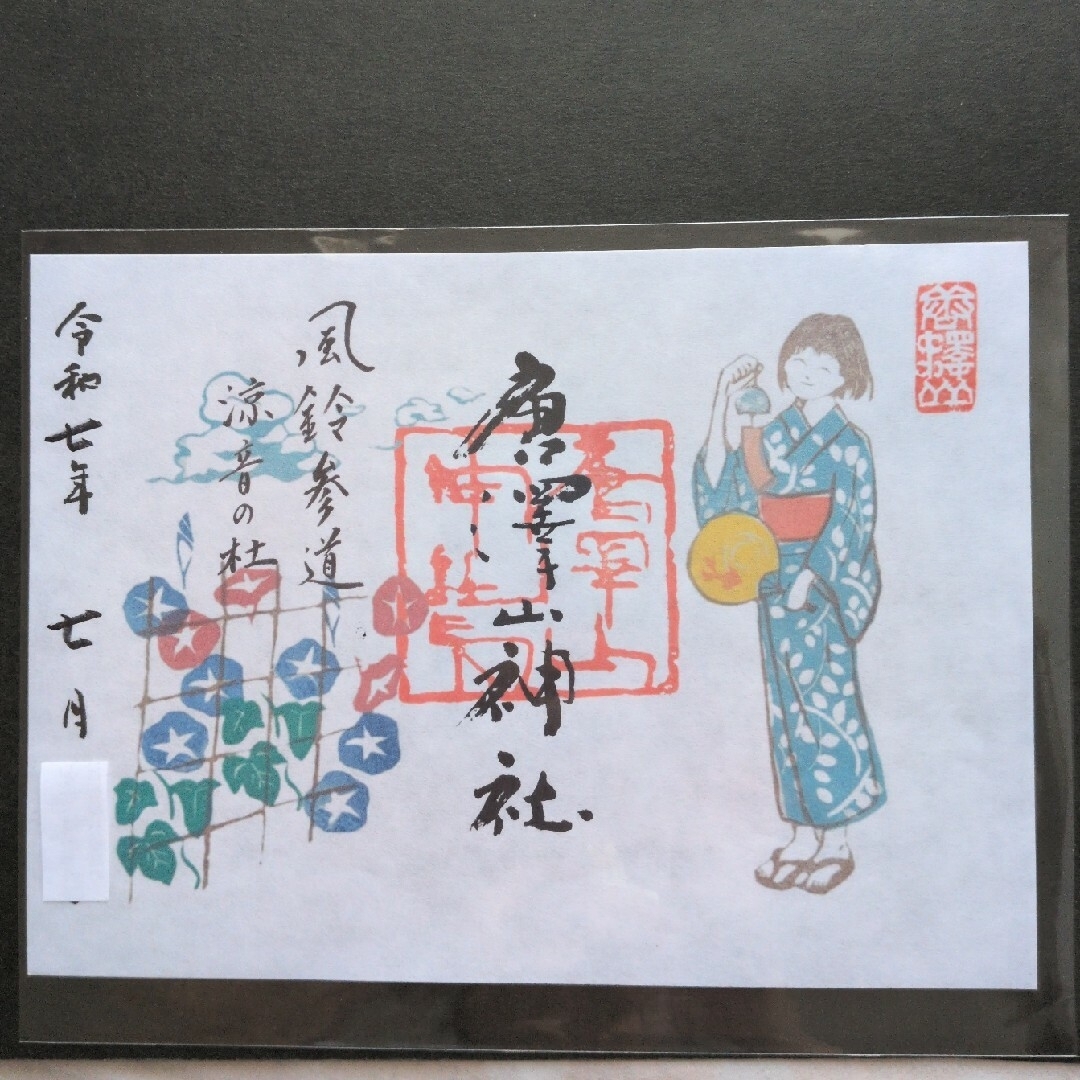 唐澤山
唐澤山神社
唐澤山
神社
風鈴参道
涼音の杜
令和七年 七月